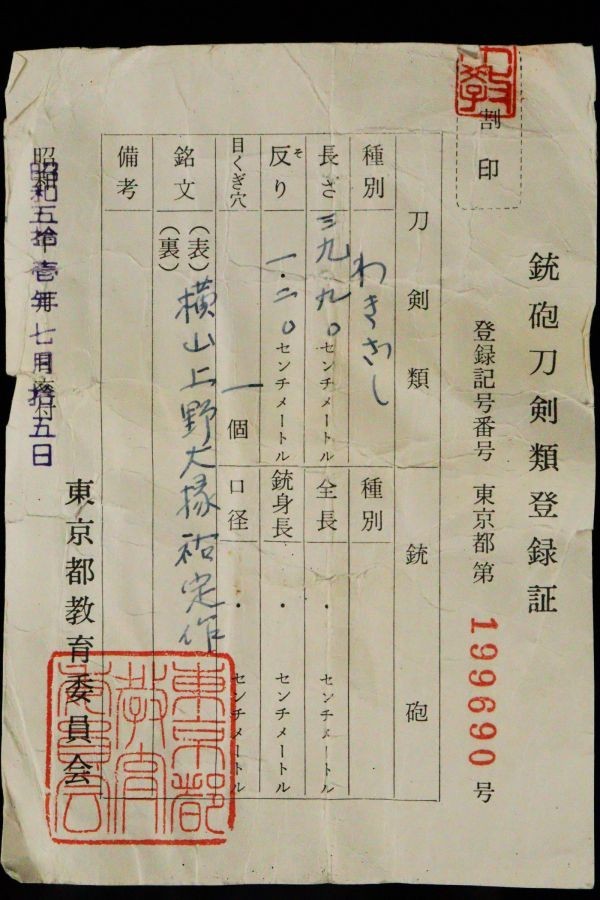 割印
銃砲刀剣類登録証
登録記号番号 東京都第 199690 号
刀剣類
銃砲
種別 わきざし
種別
長さ 三九.九〇 センチメートル
全長 ・ センチメートル
反り 一.二〇 センチメートル
そ
銃身長 ・ センチメートル
目くぎ穴 一 個
口径 ・ センチメートル
銘文 (表) 横山上野大掾祐定作
(裏)
備考
昭和五拾壱年七月拾五日
東京都教育委員会